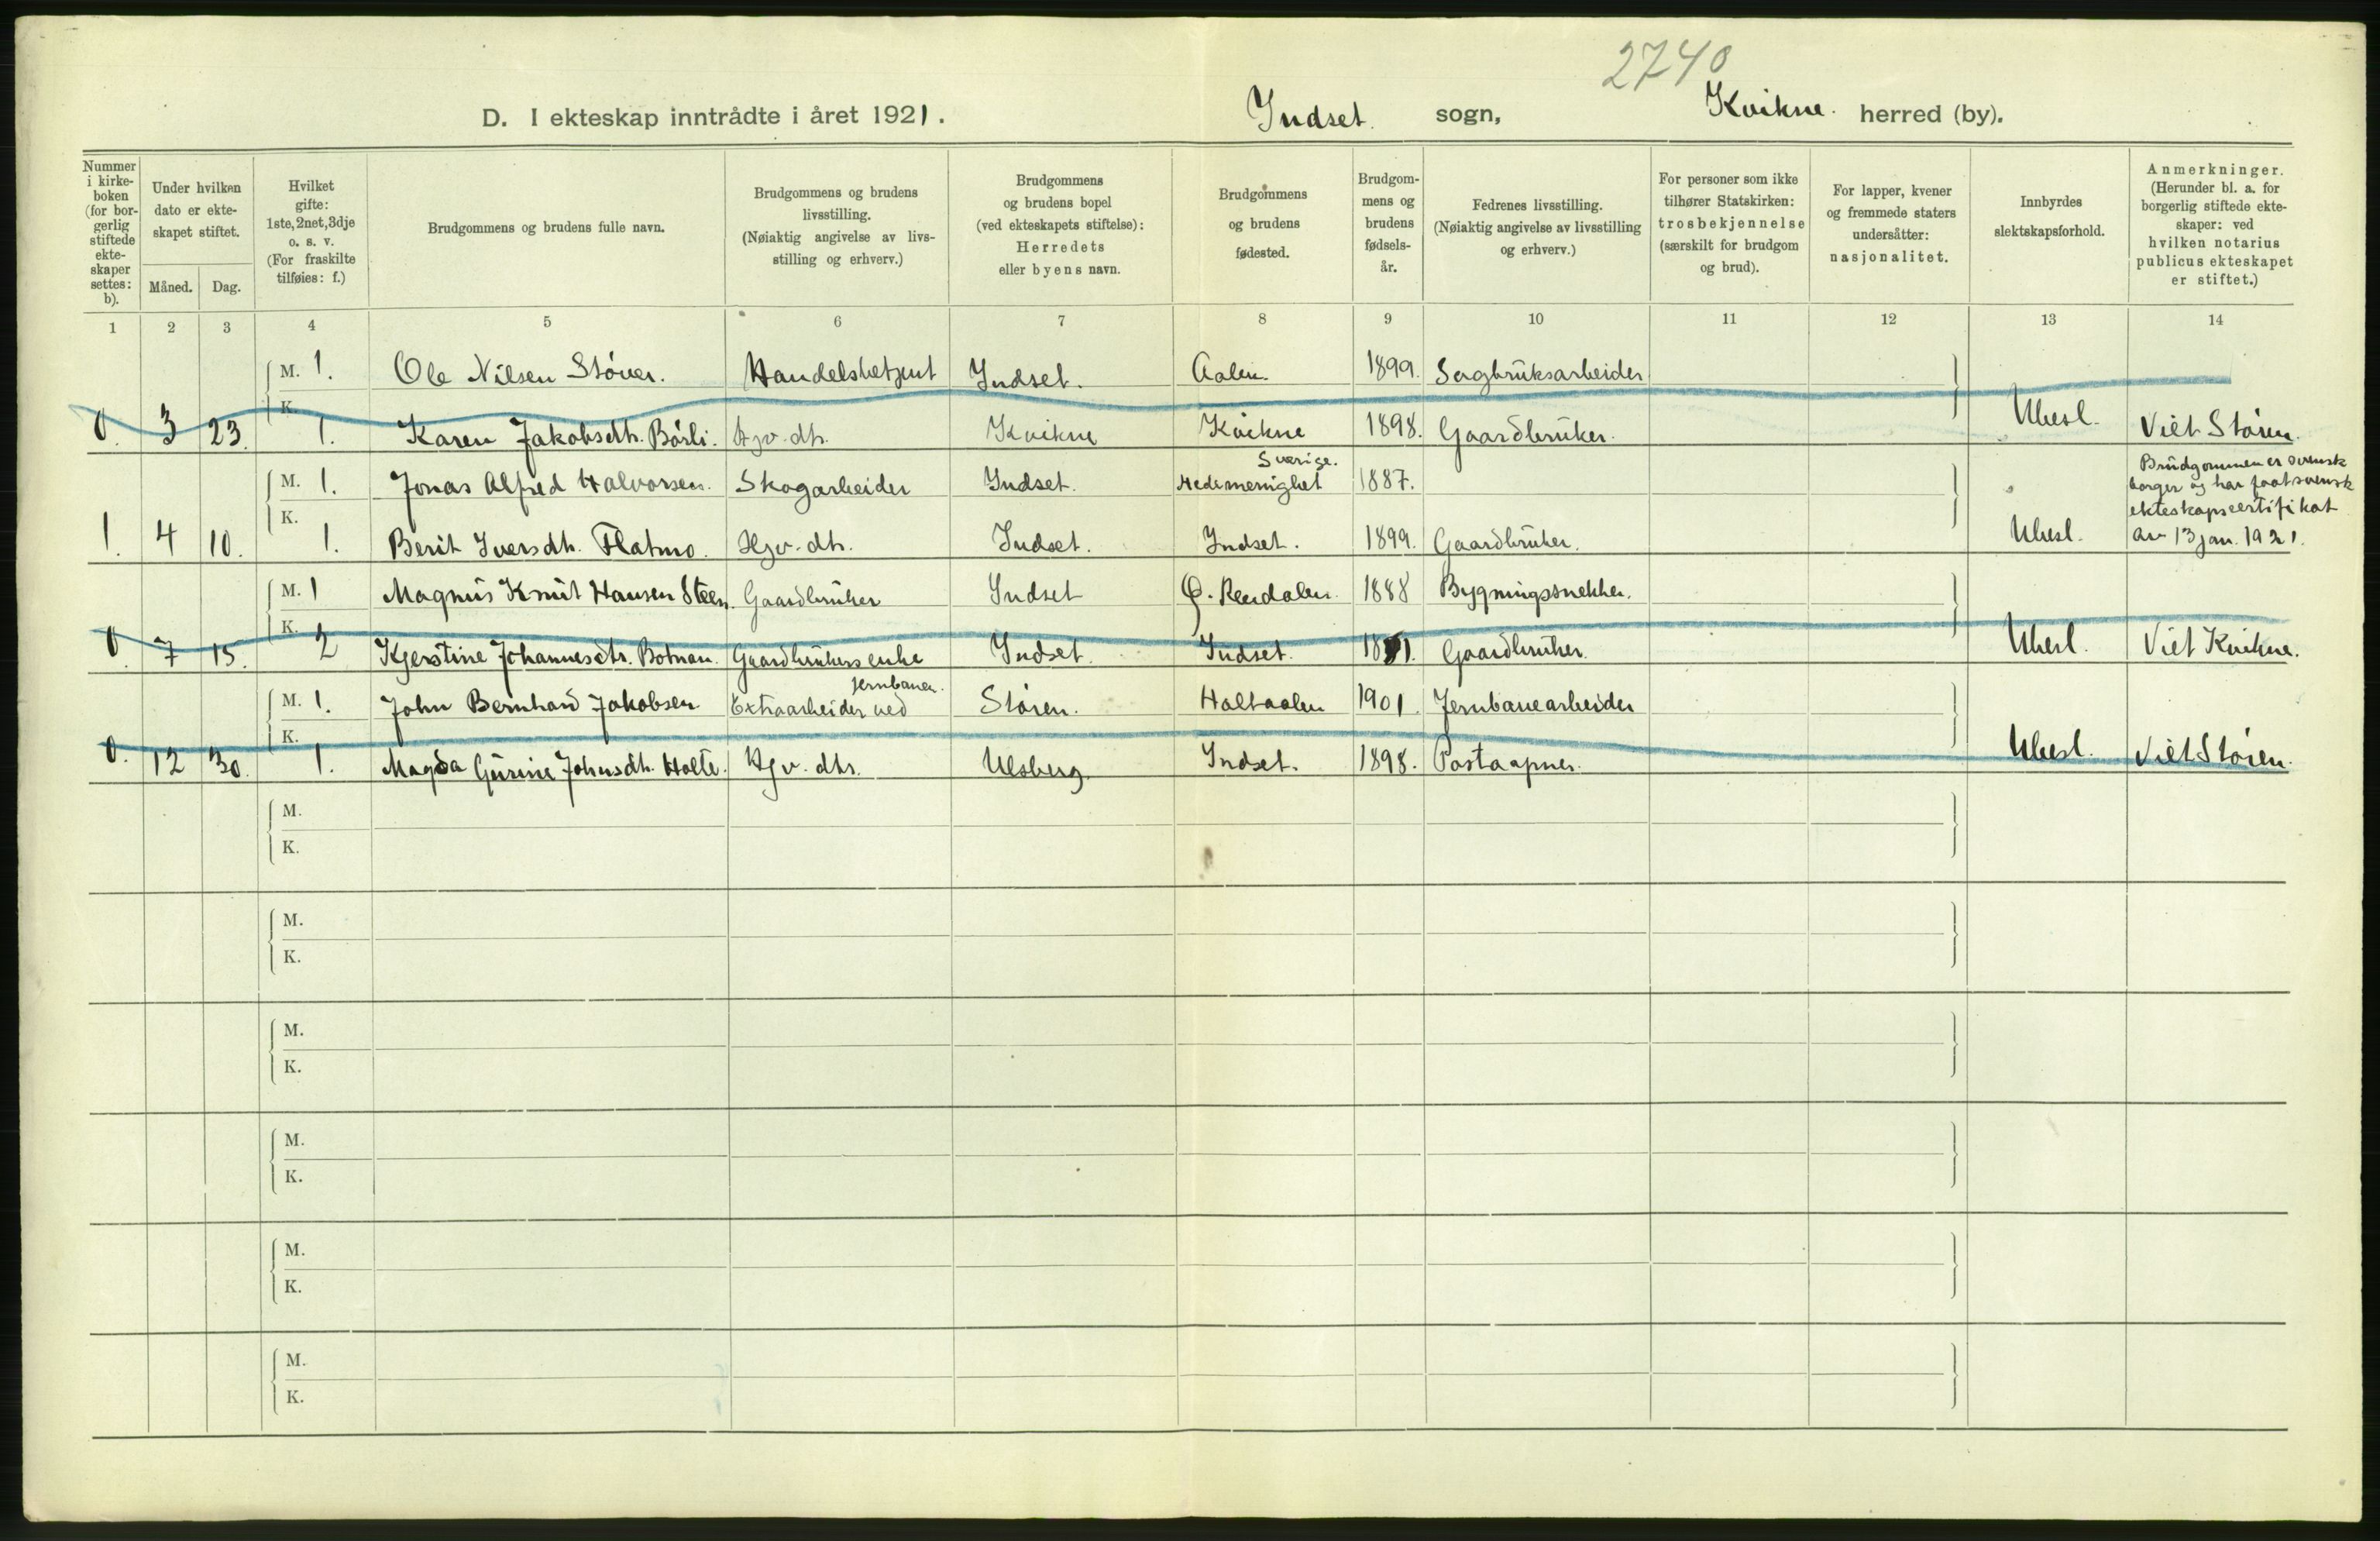 2740
D. I ekteskap inntrådte i året 1921. Indset sogn, Kvikne herred (by).
Nummer i kirke-boken (for bor-gerlig stiftede ekte-skaper settes: b).
Under hvilken dato er ekte-skapet stiftet.
Måned. Dag.
Hvilket gifte: 1ste, 2net, 3dje o. s. v. (For fraskilte tilføies: f.)
Brudgommens og brudens fulle navn.
Brudgommens og brudens livsstilling. (Nøiaktig angivelse av livs-stilling og erhverv.)
Brudgommens og brudens bopel (ved ekteskapets stiftelse): Herredets eller byens navn.
Brudgommens og brudens fødested.
Brudgom-mens og brudens fødsels-år.
Fedrenes livsstilling. (Nøiaktig angivelse av livsstilling og erhverv.)
For personer som ikke tilhører Statskirken: trosbekjennelse (særskilt for brudgom og brud).
For lapper, kvener og fremmede staters undersåtter: nasjonalitet.
Innbyrdes slektskapsforhold.
Anmerkninger. (Herunder bl. a. for borgerlig stiftede ekte-skaper: ved hvilken notarius publicus ekteskapet er stiftet.)
1 2 3 4 5 6 7 8 9 10 11 12 13 14
M. 1. Ole Nilsen Stöver. Handelsbetjent Indset. Aalen. 1899. Sagbruksarbeider
K.
0. 3 23. 1. Karen Jakobsdtr. Börli. Hjv. dtr. Kvikne Kvikne 1898. Gaardbruker. Ubesl. Viet Stören.
M. 1. Jonas Alfred Halvorsen. Skogarbeider Indset. Sverige. Hedemenighet 1887.
Brudgommen er svensk
borger og har faat svensk
ekteskapscertifikat
av 13 jan. 1921.
K.
1. 4 10. 1. Berit Iversdtr. Flatmo. Hjv. dtr. Indset. Indset. 1899. Gaardbruker. Ubesl.
M. 1 Magnus Knut Hansen Steen. Gaardbruker Indset Ø. Rendalen. 1888 Bygningssnekker.
K.
0. 7 15. 2 Kjerstine Johannesdtr. Botnan. Gaardbrukersenke Indset. Indset. Gaardbruker. Ubesl. Viet Kvikne.
M. 1. John Bernhard Jakobsen Extraarbeider ved jernbanen. Stören. Holtaalen 1901. Jernbanearbeider
K.
0. 12 30. 1. Magda Gurine Johnsdtr. Holte. Hjv. dtr. Ulsberg. Indset. 1898. Postaapner. Ubesl. Viet Stören.
M.
K.
M.
K.
M.
K.
M.
K.
M.
K.
M.
K.